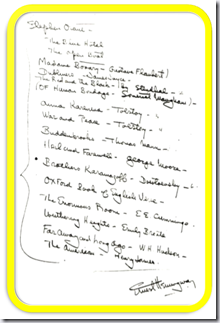 Stephen Crane -
The Blue Hotel
The Open Boat
Madame Bovary - Gustave Flaubert
Dubliners - James Joyce
The Red and the Black - by Stendhal -
Of Human Bondage - Somerset Maugham
Anna Karenina - Tolstoy -
War and Peace - Tolstoy -
Buddenbrooks - Thomas Mann -
Hail and Farewell - George Moore -
Brothers Karamazoff - Dostoevsky -
Oxford Book of English Verse
The Enormous Room - E.E. Cummings
Wuthering Heights - Emily Bronte
Far Away and Long ago - W.H. Hudson -
The American - Henry James -
Ernest Hemingway